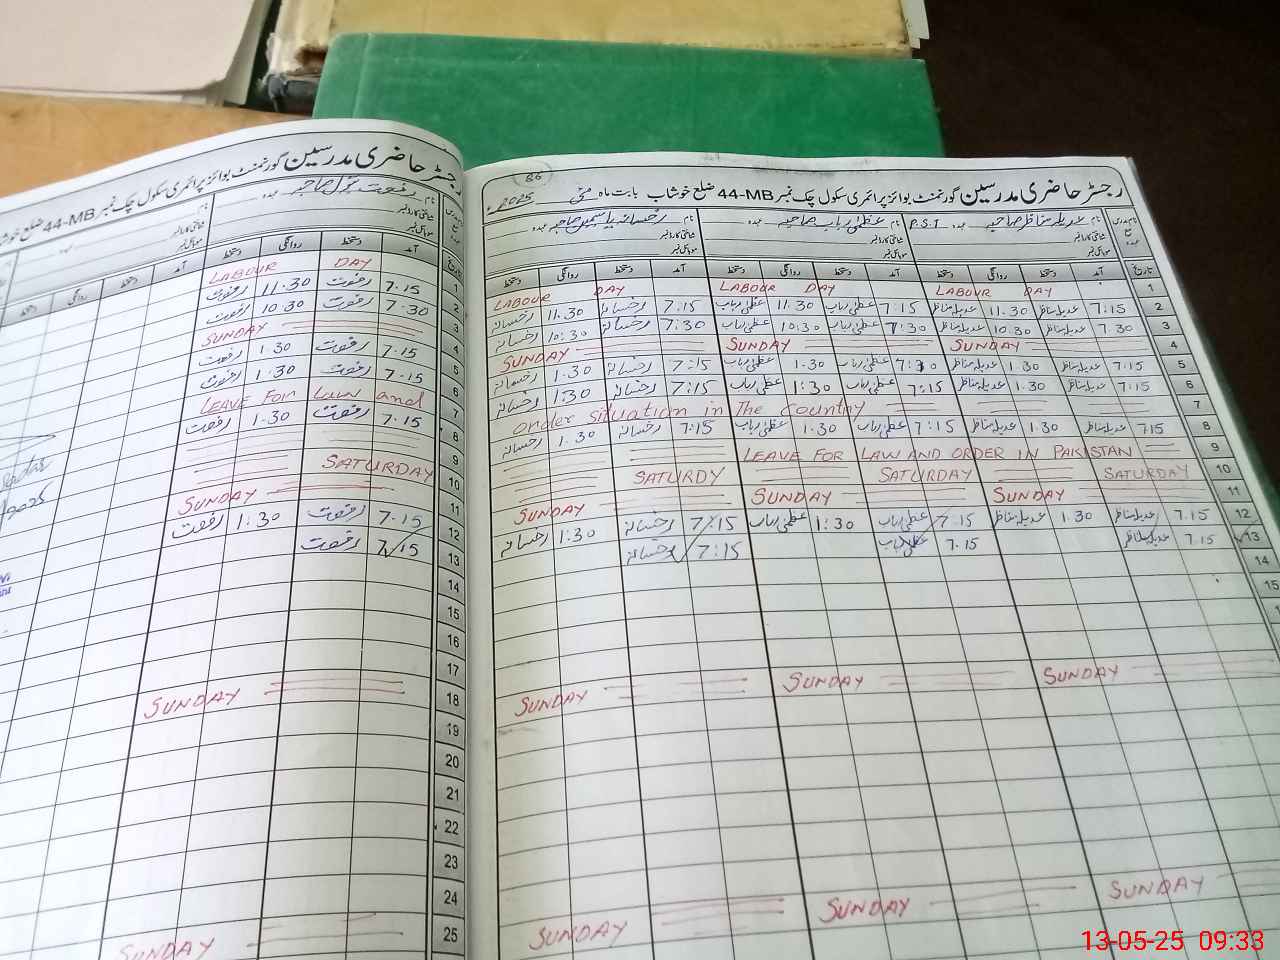 رجسٹر حاضری مدرسین گورنمنٹ بوائز پرائمری سکول چک نمبر 44-MB ضلع خوشاب بابت ماہ مئی 2025
86
نام عدیلہ مناظر صاحبہ عہدہ P.S.T نام عظمیٰ رباب صاحبہ عہدہ نام رخسانہ یاسمین صاحبہ عہدہ
شناختی کارڈ نمبر شناختی کارڈ نمبر شناختی کارڈ نمبر
موبائل نمبر موبائل نمبر موبائل نمبر
تاریخ آمد دستخط روانگی دستخط آمد دستخط روانگی دستخط آمد دستخط روانگی دستخط
1 LABOUR DAY LABOUR DAY LABOUR DAY
2 7.15 عدیلہ مناظر 11.30 عدیلہ مناظر 7.15 عظمیٰ رباب 11.30 عظمیٰ رباب 7.15 رخسانہ 11.30 رخسانہ
3 7.30 عدیلہ مناظر 10.30 عدیلہ مناظر 7:30 عظمیٰ رباب 10:30 عظمیٰ رباب 7:30 رخسانہ 10:30 رخسانہ
4 SUNDAY SUNDAY SUNDAY
5 7.15 عدیلہ مناظر 1.30 عدیلہ مناظر عظمیٰ رباب 1.30 عظمیٰ رباب 7:15 رخسانہ 1.30 رخسانہ
6 7.15 عدیلہ مناظر 1.30 عدیلہ مناظر 7:15 عظمیٰ رباب 1:30 عظمیٰ رباب 7:15 رخسانہ 1:30 رخسانہ
7 order situation in The country
8 7.15 عدیلہ مناظر 1.30 عدیلہ مناظر 7:15 عظمیٰ رباب 1.30 عظمیٰ رباب 7:15 رخسانہ 1.30 رخسانہ
9 LEAVE FOR LAW AND ORDER IN PAKISTAN
10 SATURDAY SATURDAY SATURDY
11 SUNDAY SUNDAY SUNDAY
12 7.15 عدیلہ مناظر 1.30 عدیلہ مناظر 7.15 عظمیٰ رباب 1:30 عظمیٰ رباب 7:15 رخسانہ 1:30 رخسانہ
13 7.15 عدیلہ مناظر 7.15 عظمیٰ رباب 7:15 رخسانہ
14
15
SUNDAY SUNDAY SUNDAY
SUNDAY SUNDAY SUNDAY
رجسٹر حاضری مدرسین گورنمنٹ بوائز پرائمری سکول چک نمبر 44-MB ضلع خوشاب
نام رفعت بتول صاحبہ عہدہ
شناختی کارڈ نمبر
موبائل نمبر
تاریخ آمد دستخط روانگی دستخط آمد دستخط روانگی دستخط
1 LABOUR DAY
2 7.15 رفعت 11.30 رفعت
3 7.30 رفعت 10.30 رفعت
4 SUNDAY
5 7.15 رفعت 1.30 رفعت
6 7.15 رفعت 1.30 رفعت
7 LEAVE For Law and
8 7.15 رفعت 1.30 رفعت
9
10 SATURDAY
11 SUNDAY
12 7.15 رفعت 1:30 رفعت
13 7.15 رفعت
14
15
16
17
18 SUNDAY
19
20
21
22
23
24
25 SUNDAY
13-05-25 09:33